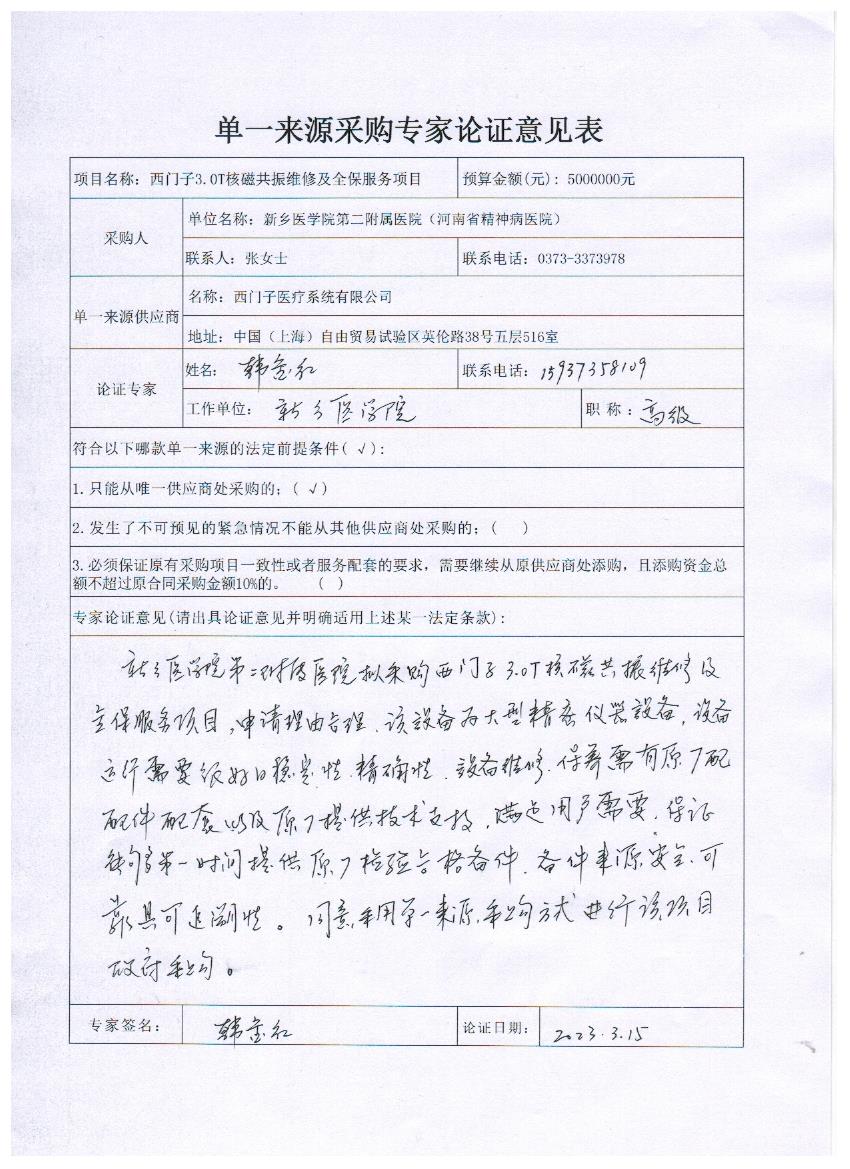 单一来源采购专家论证意见表
项目名称：西门子3.0T核磁共振维修及全保服务项目 预算金额(元)：5000000元
采购人
单位名称：新乡医学院第二附属医院（河南省精神病医院）
联系人：张女士 联系电话：0373-3373978
单一来源供应商
名称：西门子医疗系统有限公司
地址：中国（上海）自由贸易试验区英伦路38号五层516室
论证专家
姓名：韩金红 联系电话：15937358109
工作单位：新乡医学院 职称：高级
符合以下哪款单一来源的法定前提条件(√)：
1.只能从唯一供应商处采购的；(√)
2.发生了不可预见的紧急情况不能从其他供应商处采购的；( )
3.必须保证原有采购项目一致性或者服务配套的要求，需要继续从原供应商处添购，且添购资金总
额不超过原合同采购金额10%的。 ( )
专家论证意见(请出具论证意见并明确适用上述某一法定条款)：
新乡医学院第二附属医院拟采购西门子3.0T核磁共振维修及
全保服务项目，申请理由合理、该设备为大型精密仪器设备，设备
运行需要很好的稳定性、精确性、设备维修、保养需有原厂配
配件配套以及原厂提供技术支持，满足用户需要，保证
能够第一时间提供原厂检验合格备件、备件来源安全、可
靠具可追溯性。同意采用单一来源采购方式进行该项目
政府采购。
专家签名：韩金红 论证日期：2023.3.15